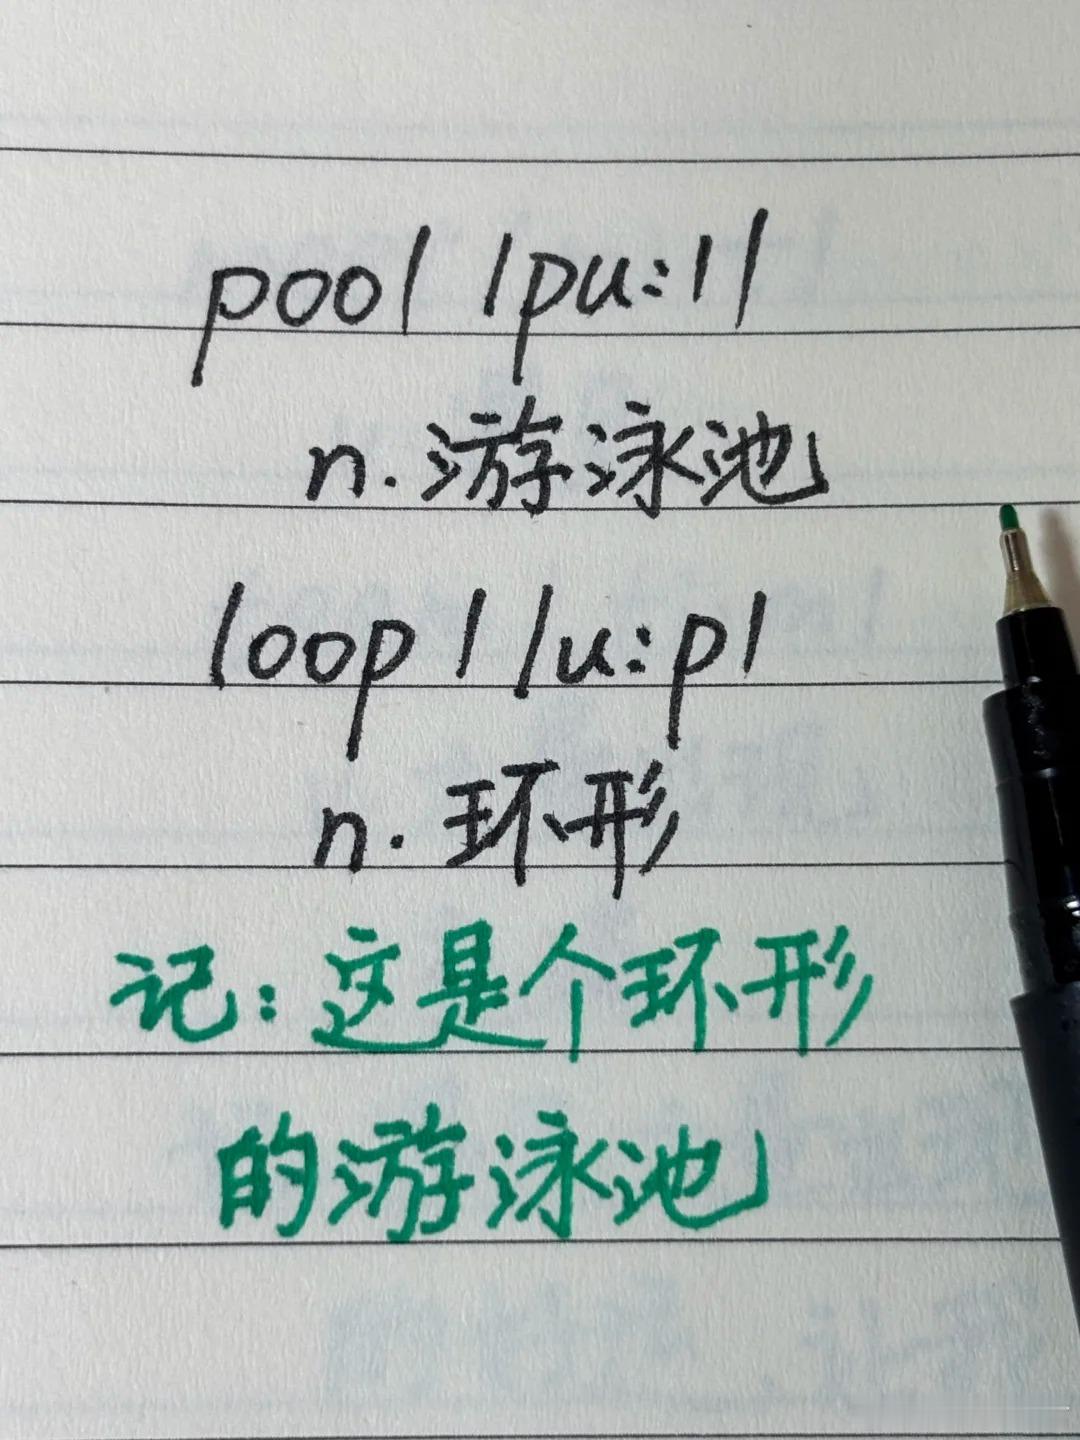 pool /pu:l/
n. 游泳池
loop / lu:p/
n. 环形
记: 这是个环形
的游泳池